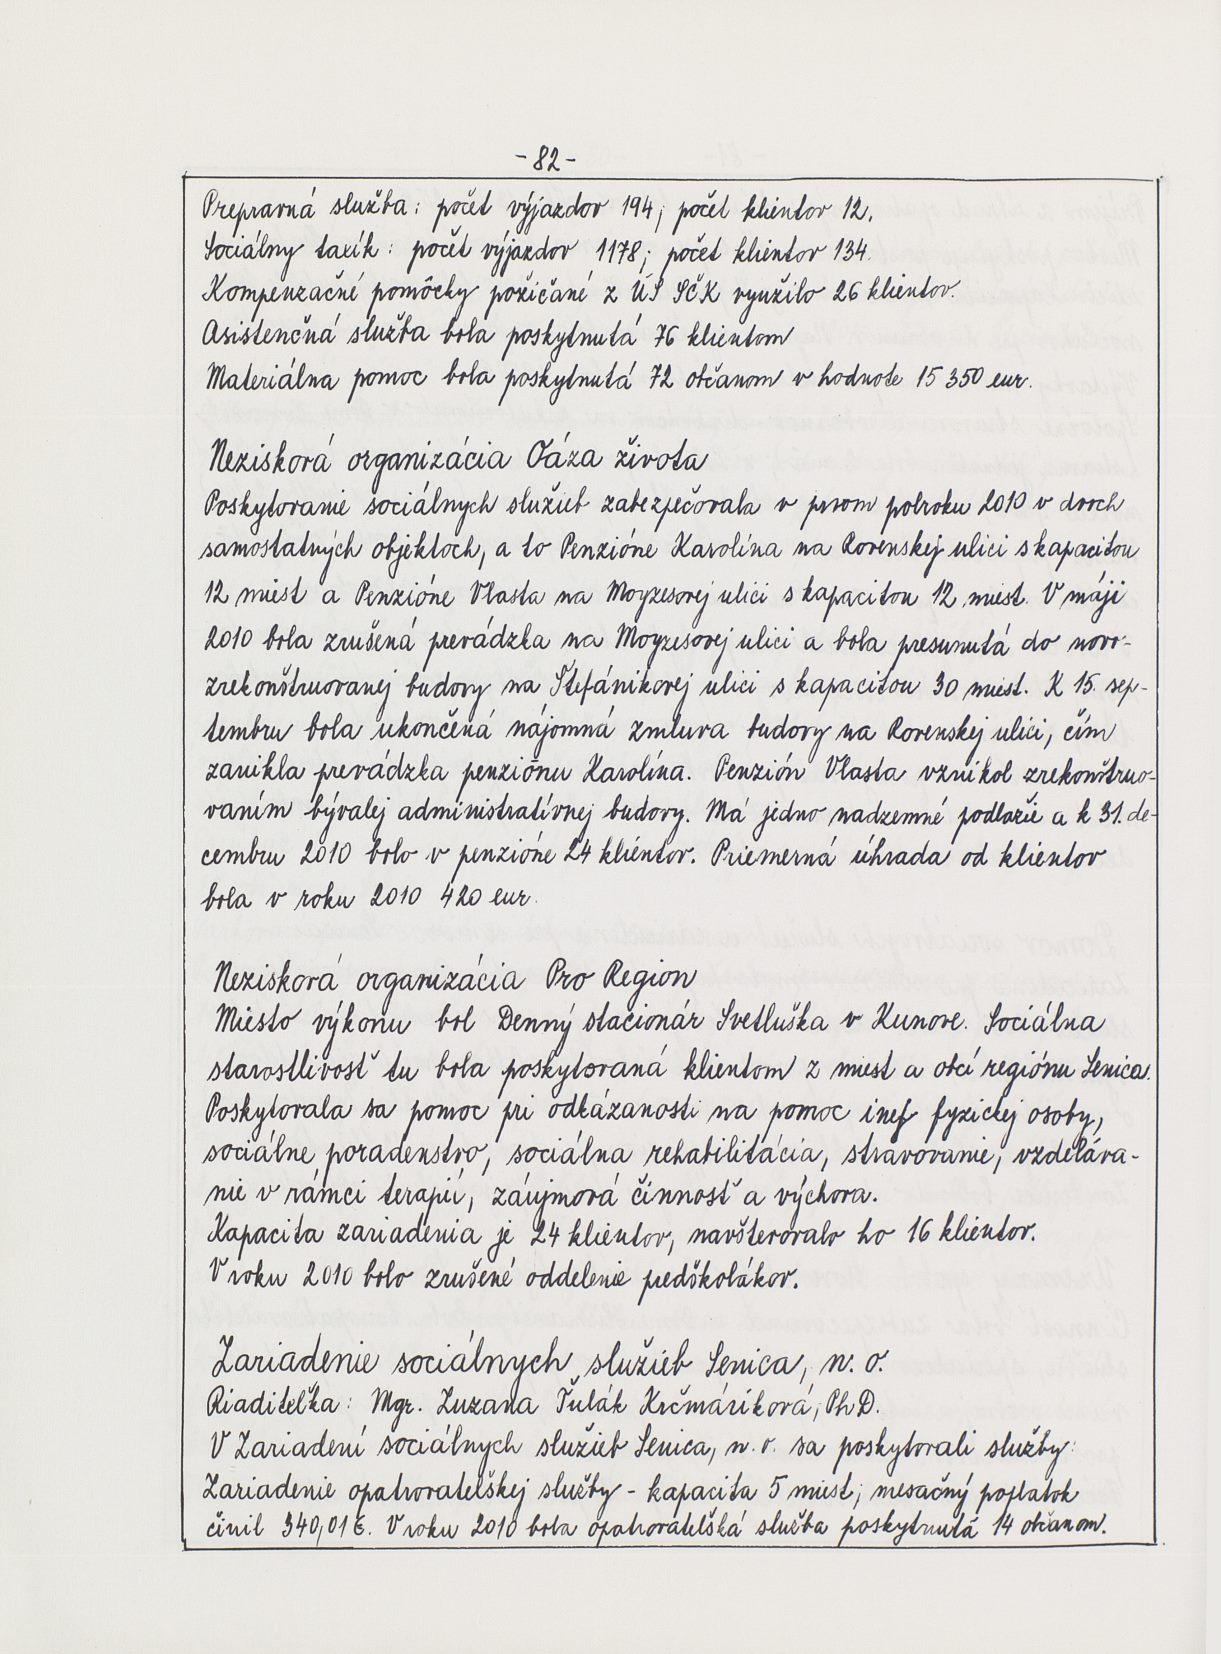 - 82 -
Prepravná služba: počet výjazdov 194; počet klientov 12.
Sociálny taxík: počet výjazdov 1178; počet klientov 134.
Kompenzačné pomôcky požičané z ÚS SČK využilo 26 klientov.
Asistenčná služba bola poskytnutá 76 klientom
Materiálna pomoc bola poskytnutá 72 občanom v hodnote 15 350 eur.
Nezisková organizácia Oáza života
Poskytovanie sociálnych služieb zabezpečovala v prvom polroku 2010 v dvoch
samostatných objektoch, a to Penzióne Karolína na Rovenskej ulici s kapacitou
12 miest a Penzióne Vlasta na Moyzesovej ulici s kapacitou 12 miest. V máji
2010 bola zrušená prevádzka na Moyzesovej ulici a bola presunutá do novo-
zrekonštruovanej budovy na Štefánikovej ulici s kapacitou 30 miest. K 15. sep-
tembru bola ukončená nájomná zmluva budovy na Rovenskej ulici, čím
zanikla prevádzka penziónu Karolína. Penzión Vlasta vznikol zrekonštruo-
vaním bývalej administratívnej budovy. Má jedno nadzemné podlažie a k 31. de-
cembru 2010 bolo v penzióne 24 klientov. Priemerná úhrada od klientov
bola v roku 2010 420 eur.
Nezisková organizácia Pro Region
Miesto výkonu bol Denný stacionár Svetluška v Kunove. Sociálna
starostlivosť tu bola poskytovaná klientom z miest a obcí regiónu Senica.
Poskytovala sa pomoc pri odkázanosti na pomoc inej fyzickej osoby,
sociálne poradenstvo, sociálna rehabilitácia, stravovanie, vzdeláva-
nie v rámci terapií, záujmová činnosť a výchova.
Kapacita zariadenia je 24 klientov, navštevovalo ho 16 klientov.
V roku 2010 bolo zrušené oddelenie predškolákov.
Zariadenie sociálnych služieb Senica, n. o.
Riaditeľka: Mgr. Zuzana Ťulák Krčmáriková, PhD.
V Zariadení sociálnych služieb Senica, n. o. sa poskytovali služby:
Zariadenie opatrovateľskej služby - kapacita 5 miest; mesačný poplatok
činil 340,01 €. V roku 2010 bola opatrovateľská služba poskytnutá 14 občanom.